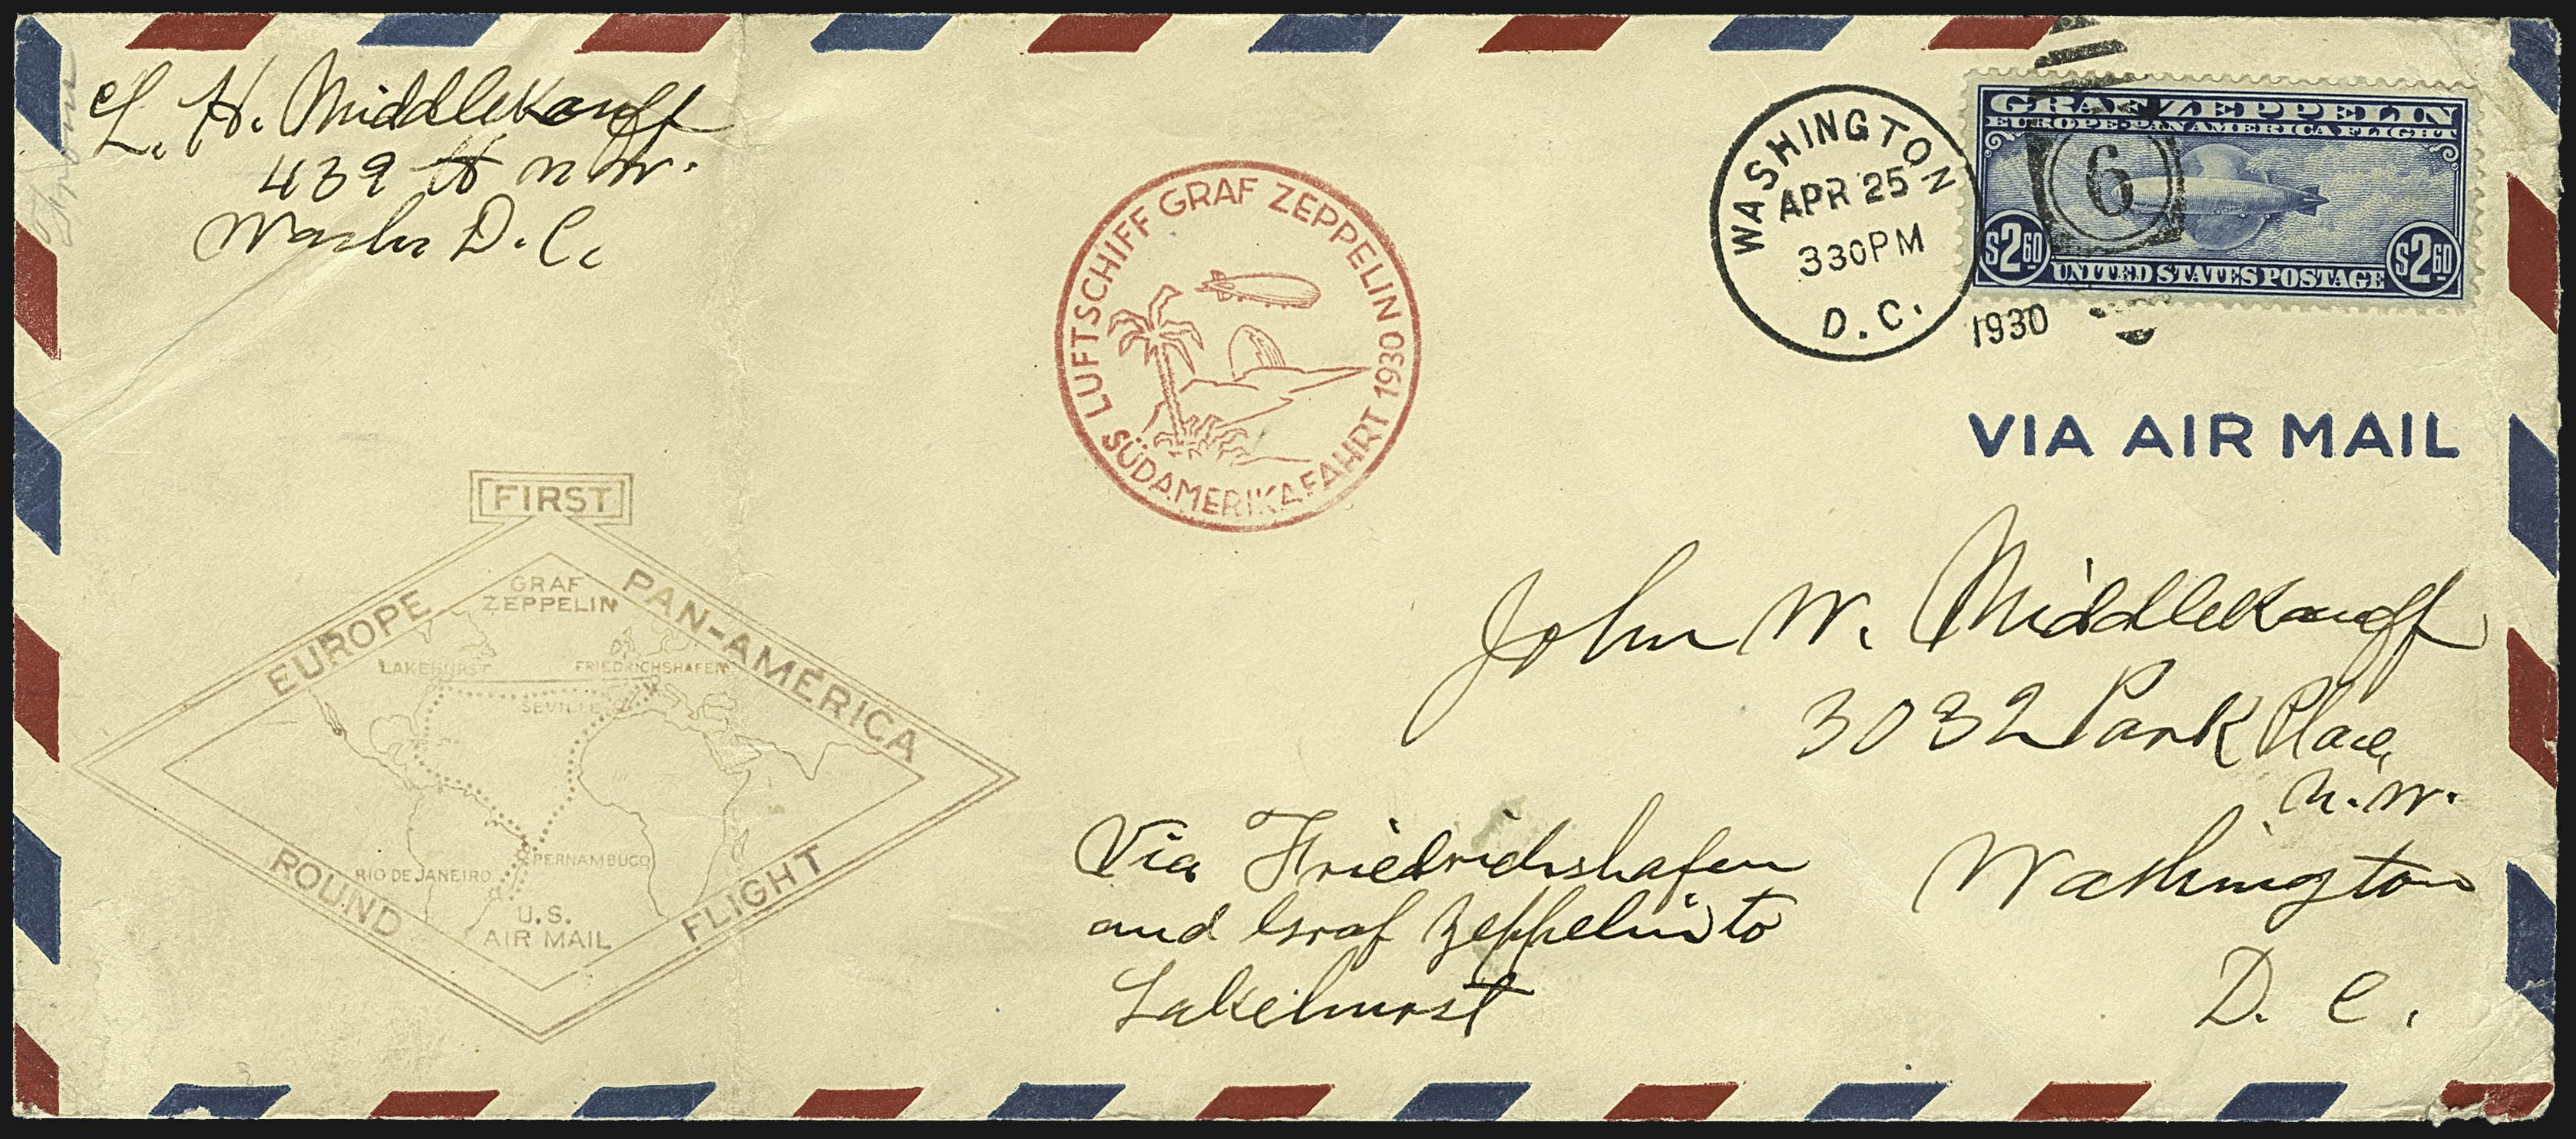 L. H. Middlekauff
439 H N W.
Washn D. C.
LUFTSCHIFF GRAF ZEPPELIN 1930
SÜDAMERIKAFAHRT
WASHINGTON
APR 25
330PM
D.C.
1930
6
GRAF ZEPPELIN
EUROPE-PAN AMERICA FLIGHT
$2.60 UNITED STATES POSTAGE $2.60
VIA AIR MAIL
FIRST
EUROPE PAN-AMERICA
GRAF
ZEPPELIN
LAKEHURST FRIEDRICHSHAFEN
SEVILLE
PERNAMBUCO
RIO DE JANEIRO
U.S.
AIR MAIL
ROUND FLIGHT
John W. Middlekauff
3032 Park Place,
N. W.
Washington
D. C.
Via Friedrichshafen
and Graf Zeppelin to
Lakehurst